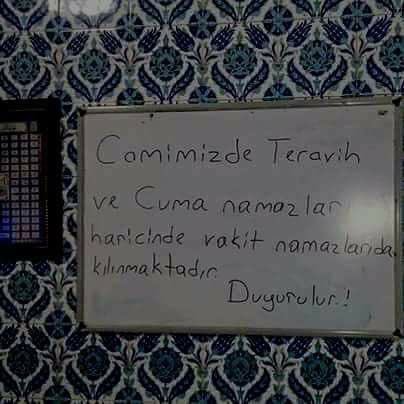 Camimizde Teravih
ve Cuma namazları
haricinde vakit namazlarıda
kılınmaktadır.
Duyurulur.!